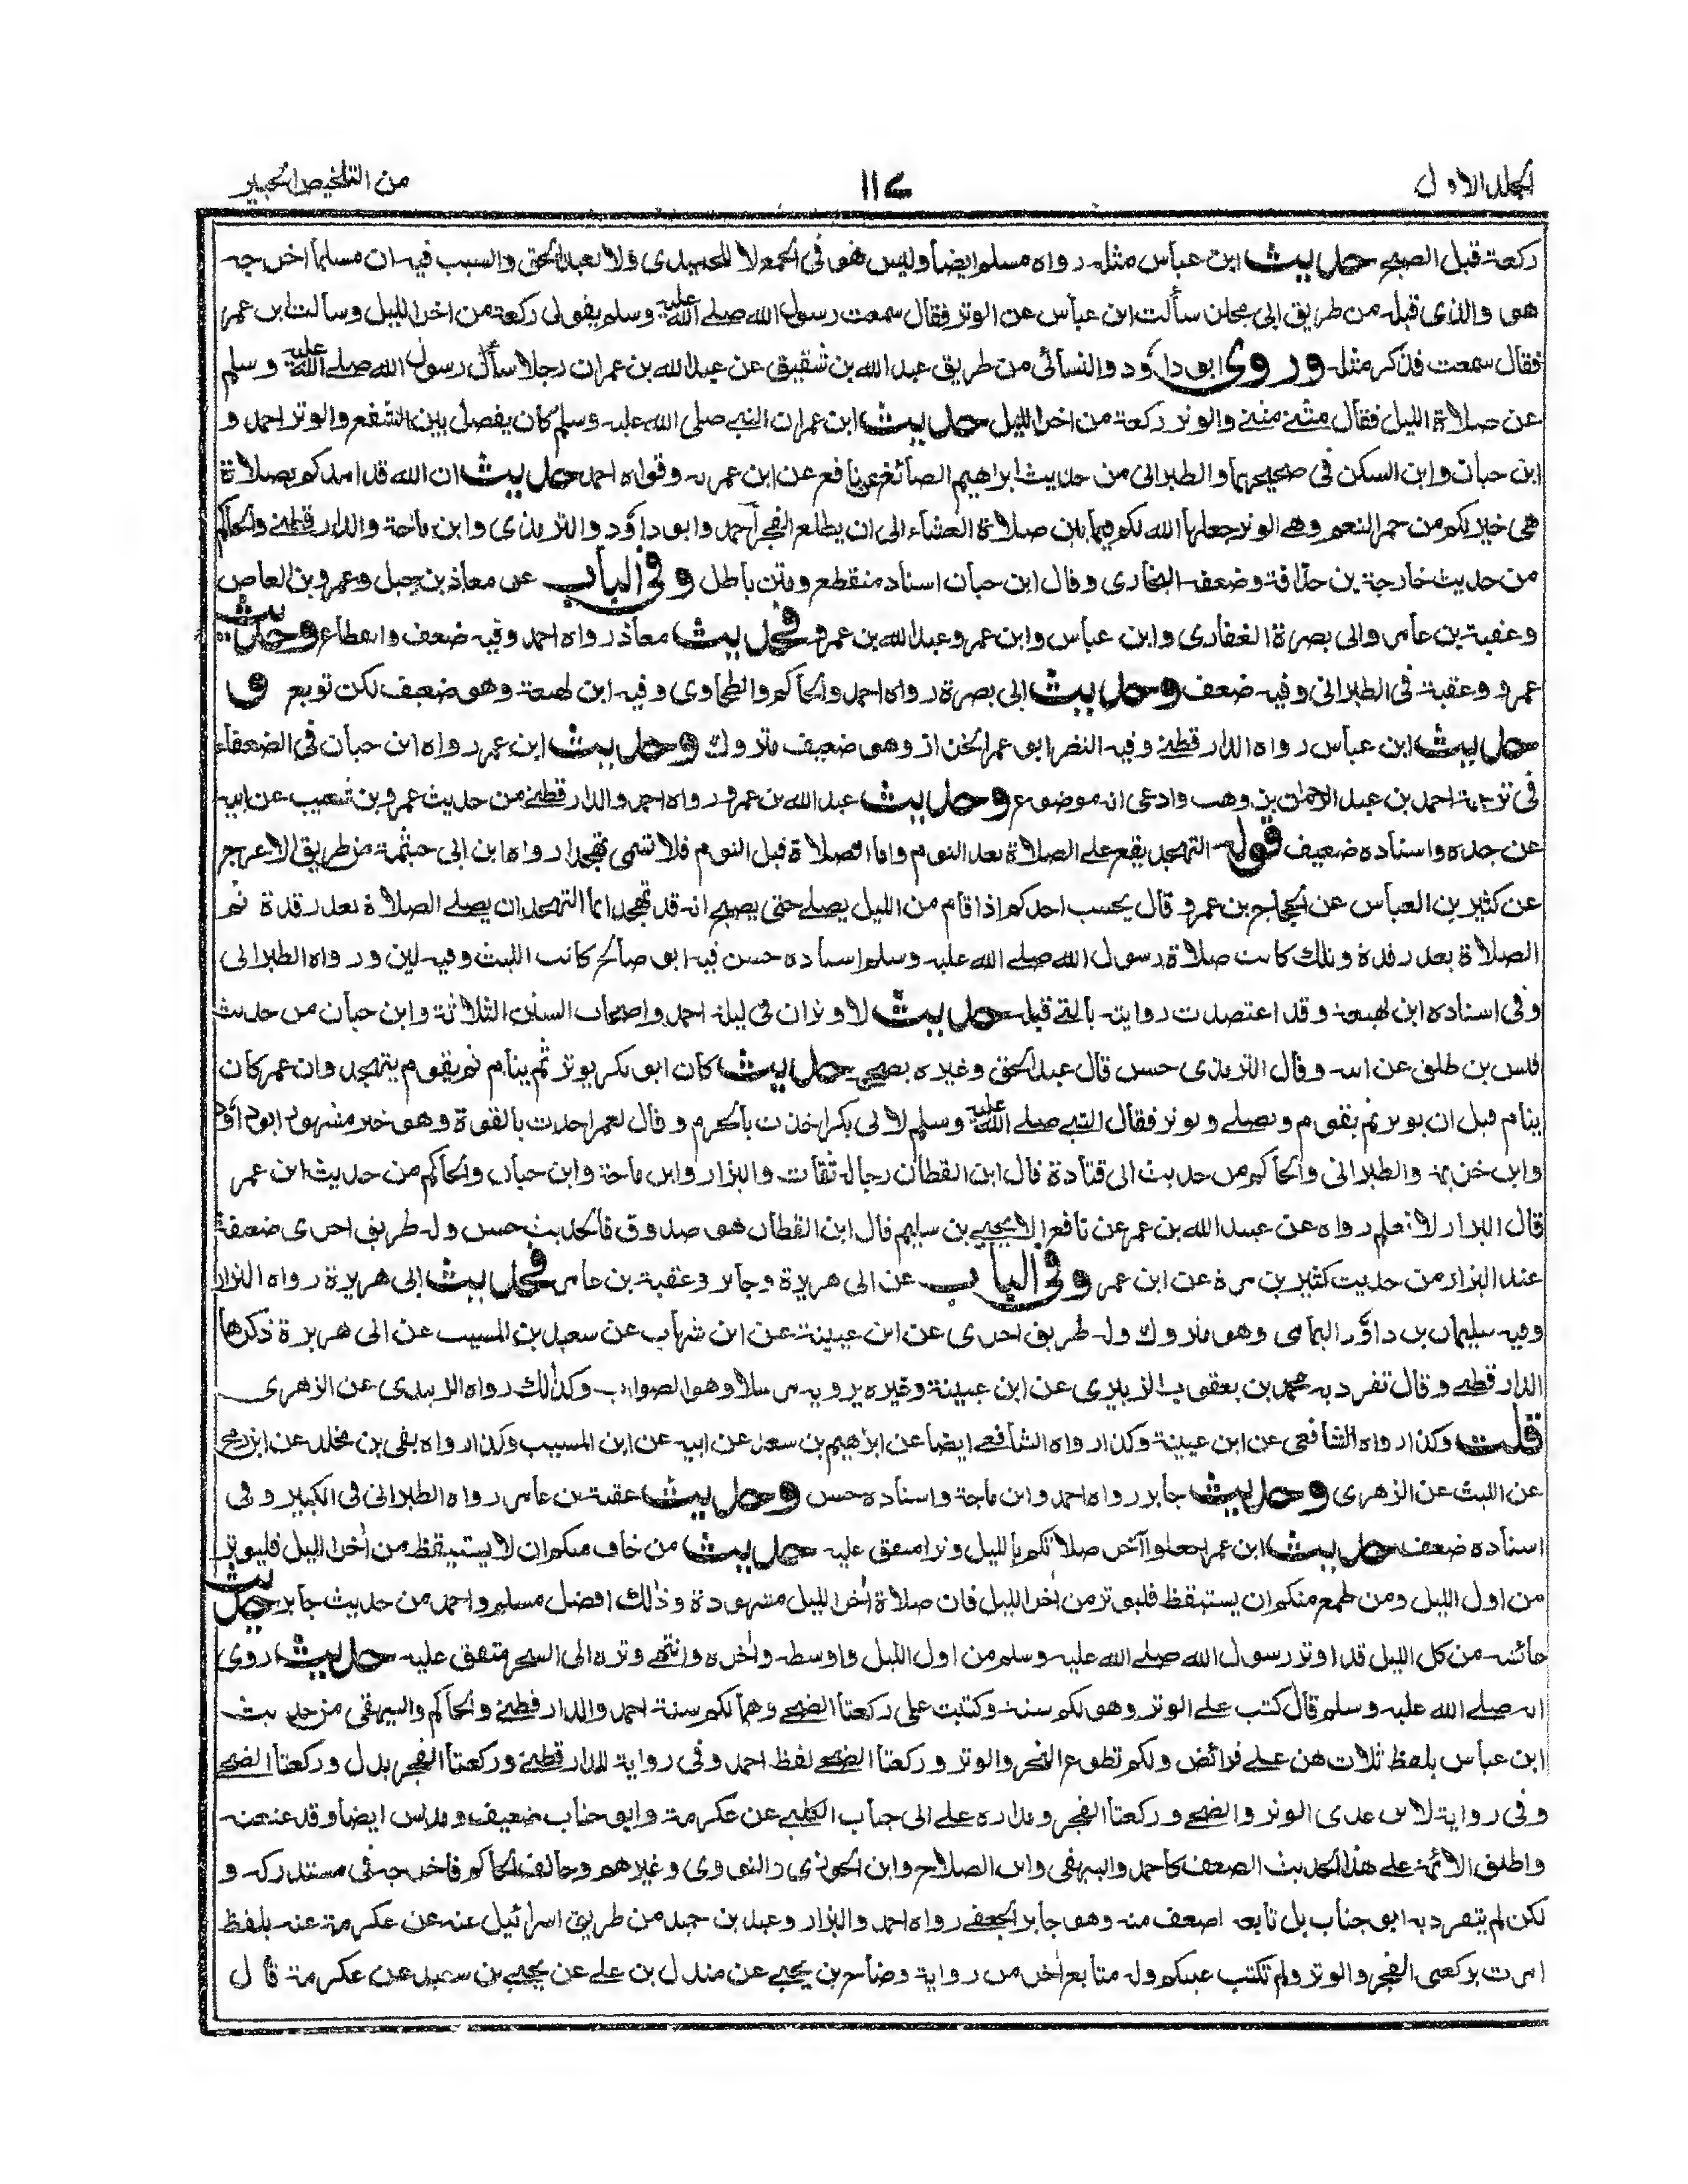 المجلد الاول
١١٧
من التلخيص الحبير
ركعة قبل الصبح حديث ابن عباس مثله رواه مسلم ايضا وليس هو في الجمع لا للحميدي ولا لعبد الحق والسبب فيه ان مسلما اخرجه
هو والذي قبله من طريق ابي مجلز سألت ابن عباس عن الوتر فقال سمعت رسول الله صلے الله عليه وسلم يقول ركعة من اخر الليل وسالت ابن عمر
فقال سمعت فذكر مثله وروى ابو داود والنسائي من طريق عبد الله بن شقيق عن عبد الله بن عمر ان رجلا سأل رسول الله صلے الله عليه وسلم
عن صلاة الليل فقال مثنے مثنے والوتر ركعة من اخر الليل حديث ابن عمر ان النبے صلى الله عليه وسلم كان يفصل بين الشفع والوتر احمد و
ابن حبان وابن السكن في صحيحيهما والطبراني من حديث ابراهيم الصائغ عن نافع عن ابن عمر به وقواه احمد حديث ان الله قد امدكم بصلاة
هي خير لكم من حمر النعم وهے الوتر جعلها الله لكم فيما بين صلاة العشاء الى ان يطلع الفجر احمد وابو داود والترمذي وابن ماجة والدارقطنے والحاكم
من حديث خارجة بن حذافة وضعفه البخاري وقال ابن حبان اسناد منقطع ومتن باطل وفي الباب عن معاذ بن جبل وعمرو بن العاص
وعقبة بن عامر وابي بصرة الغفاري وابن عباس وابن عمر وعبد الله بن عمرو فحديث معاذ رواه احمد وفيه ضعف وانقطاع وحديث
عمرو وعقبة في الطبراني وفيه ضعف وحديث ابي بصرة رواه احمد والحاكم والطحاوي وفيه ابن لهيعة وهو ضعيف لكن توبع و
حديث ابن عباس رواه الدارقطنے وفيه النضر ابو عمر الخزاز وهو ضعيف متروك وحديث ابن عمر رواه ابن حبان في الضعفاء
في ترجمة احمد بن عبد الرحمٰن بن وهب وادعى انه موضوع وحديث عبد الله بن عمرو رواه احمد والدارقطنے من حديث عمرو بن شعيب عن ابيه
عن جده واسناده ضعيف قوله التهجد يقع علے الصلاة بعد النوم واما الصلاة قبل النوم فلا تسمى تهجدا رواه ابن ابي خيثمة من طريق الاعرج
عن كثير بن العباس عن الحجاج بن عمرو قال يحسب احدكم اذا قام من الليل يصلے حتى يصبح انه قد تهجد انما التهجد ان يصلے الصلاة بعد رقدة ثم
الصلاة بعد رقدة وتلك كانت صلاة رسول الله صلے الله عليه وسلم اسناده حسن فيه ابو صالح كاتب الليث وفيه لين ورواه الطبراني
وفي اسناده ابن لهيعة وقد اعتضدت روايته بالتے قبله حديث لا وتران في ليلة احمد واصحاب السنن الثلاثة وابن حبان من حديث
قيس بن طلق عن ابيه وقال الترمذي حسن قال عبد الحق وغيره يصححه حديث كان ابو بكر يوتر ثم ينام ثم يقوم يتهجد وان عمر كان
ينام قبل ان يوتر ثم يقوم ويصلے ويوتر فقال النبے صلے الله عليه وسلم لابي بكر اخذت بالحزم وقال لعمر اخذت بالقوة وهو خبر مشهور ابو داود
وابن خزيمة والطبراني والحاكم من حديث ابي قتادة قال ابن القطان رجاله ثقات والبزار وابن ماجة وابن حبان والحاكم من حديث ابن عمر
قال البزار لا نعلم رواه عن عبيد الله بن عمر عن نافع الا يحيے بن سليم قال ابن القطان هو صدوق فالحديث حسن وله طريق اخرى ضعيفة
عند البزار من حديث كثير بن مرة عن ابن عمر وفي الباب عن ابي هريرة وجابر وعقبة بن عامر فحديث ابي هريرة رواه البزار
وفيه سليمان بن داود اليمامي وهو متروك وله طريق اخرى عن ابن عيينة عن ابن شهاب عن سعيد بن المسيب عن ابي هريرة ذكرها
الدارقطنے وقال تفرد به محمد بن يعقوب الزبيري عن ابن عيينة وغيره يرويه مرسلا وهو الصواب وكذلك رواه الزبيدي عن الزهري
قلت وكذا رواه الشافعي عن ابن عيينة وكذا رواه الشافعے ايضا عن ابراهيم بن سعد عن ابيه عن ابن المسيب وكذا رواه بقي بن مخلد عن ابن رمح
عن الليث عن الزهري وحديث جابر رواه احمد وابن ماجة واسناده حسن وحديث عقبة بن عامر رواه الطبراني في الكبير وفي
اسناده ضعف حديث ابن عمر اجعلوا آخر صلاتكم بالليل وترا متفق عليه حديث من خاف منكم ان لا يستيقظ من اخر الليل فليوتر
من اول الليل ومن طمع منكم ان يستيقظ فليوتر من اخر الليل فان صلاة اخر الليل مشهودة وذلك افضل مسلم واحمد من حديث جابر حديث
عائشة من كل الليل قد اوتر رسول الله صلے الله عليه وسلم من اول الليل واوسطه واخره وانتهے وتره الى السحر متفق عليه حديث روى
انه صلے الله عليه وسلم قال كتب علے الوتر وهو لكم سنة وكتبت علي ركعتا الضحے وهما لكم سنة احمد والدارقطنے والحاكم والبيهقي من حديث
ابن عباس بلفظ ثلاث هن علے فرائض ولكم تطوع النحر والوتر وركعتا الضحے لفظ احمد وفي رواية للدارقطنے وركعتا الفجر بدل وركعتا الضحے
وفي رواية لابن عدي الوتر والضحے وركعتا الفجر ومداره علے ابي جناب الكلبے عن عكرمة وابو جناب ضعيف ومدلس ايضا وقد عنعنه
واطلق الائمة علے هذا الحديث الضعف كاحمد والبيهقي وابن الصلاح وابن الجوزي والنووي وغيرهم وخالف الحاكم فاخرجه في مستدركه و
لكن لم يتفرد به ابو جناب بل تابعه اضعف منه وهو جابر الجعفے رواه احمد والبزار وعبد بن حميد من طريق اسرائيل عنه عن عكرمة عنه بلفظ
امرت بركعتي الفجر والوتر ولم تكتب عليكم وله متابع اخر من رواية وضاح بن يحيے عن مندل بن علے عن يحيے بن سعيد عن عكرمة قال